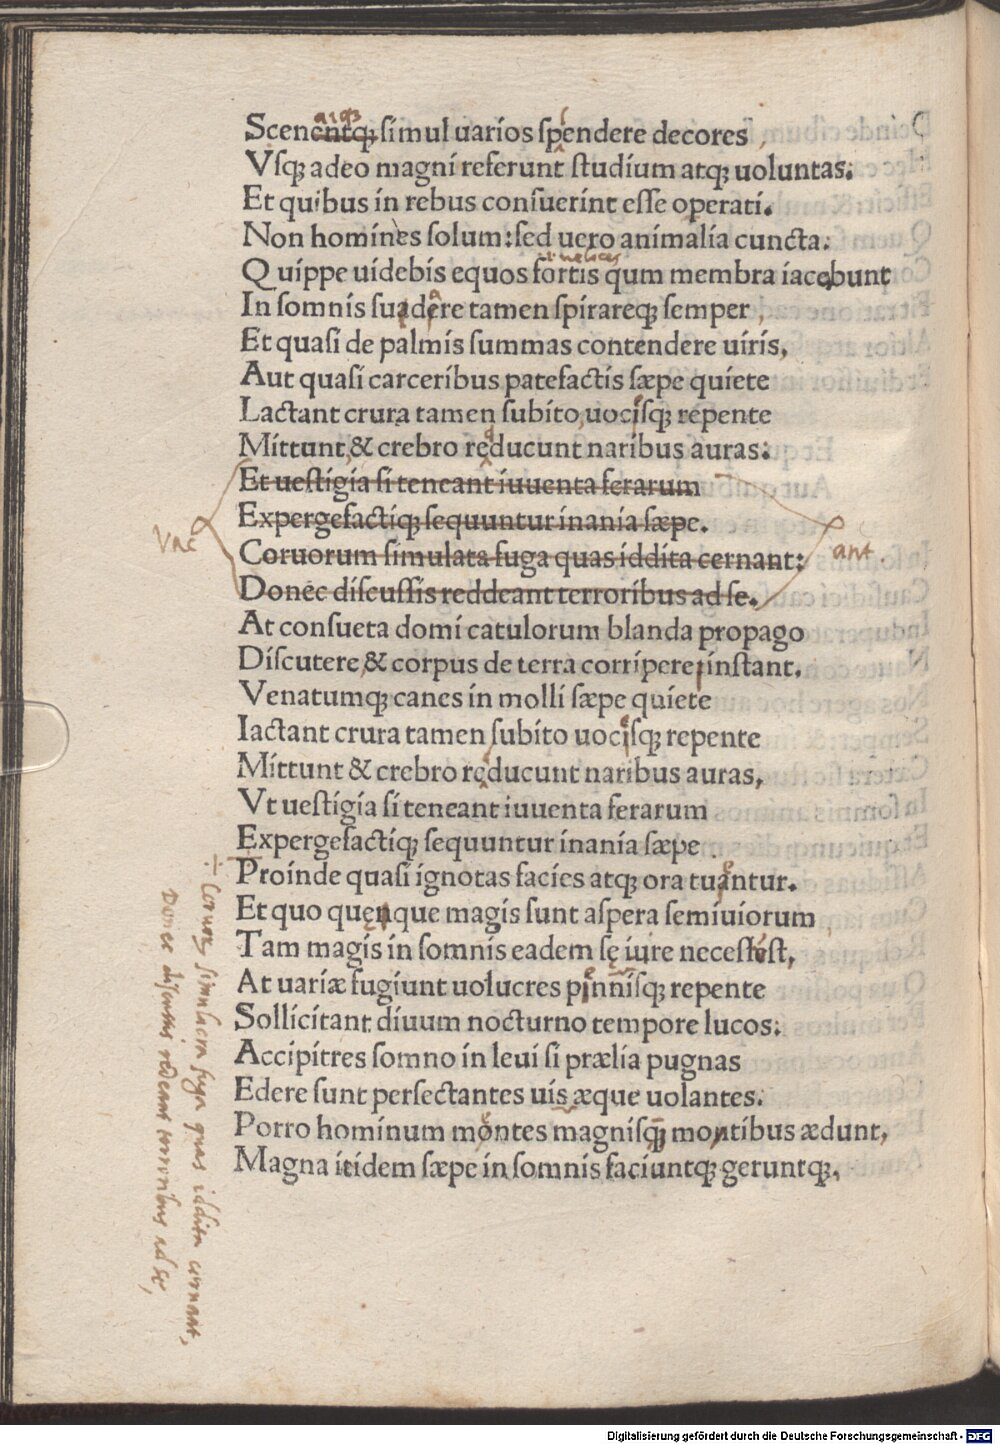 Scenentq; simul uarios spendere decores
aiqz
Vsq; adeo magni referunt studium atq; uoluntas.
Et quibus in rebus consuerint esse operati.
Non homines solum: sed uero animalia cuncta.
Quippe uidebis equos fortis qum membra iacebunt
In somnis suadere tamen spirareq; semper
Et quasi de palmis summas contendere uiris,
Aut quasi carceribus patefactis sæpe quiete
Lactant crura tamen subito uocisq; repente
Mittunt, & crebro reducunt naribus auras:
Et uestigia si teneant iuuenta ferarum
Expergefactiq; sequuntur inania sæpe.
Vac
ant
Coruorum simulata fuga quas iddita cernant:
Donec discussis reddeant terroribus ad se.
At consueta domi catulorum blanda propago
Discutere, & corpus de terra corripere instant.
Venatumq; canes in molli sæpe quiete
Iactant crura tamen subito uocisq; repente
Mittunt & crebro reducunt naribus auras,
Vt uestigia si teneant iuuenta ferarum
Expergefactiq; sequuntur inania sæpe
Proinde quasi ignotas facies atq; ora tuantur.
Et quo quenque magis sunt aspera semiuiorum
Tam magis in somnis eadem se iure necessest,
At uariæ fugiunt uolucres pinnisq; repente
Sollicitant diuum nocturno tempore lucos.
Accipitres somno in leui si prælia pugnas
Edere sunt persectantes uis æque uolantes.
Porro hominum montes magnisq; montibus ædunt,
Magna itidem sæpe in somnis faciuntq; geruntq;.
÷ Coruorz simulacra fuga quas iddita cernant,
Donec discussis redeant terroribus ad se,
Digitalisierung gefördert durch die Deutsche Forschungsgemeinschaft - DFG